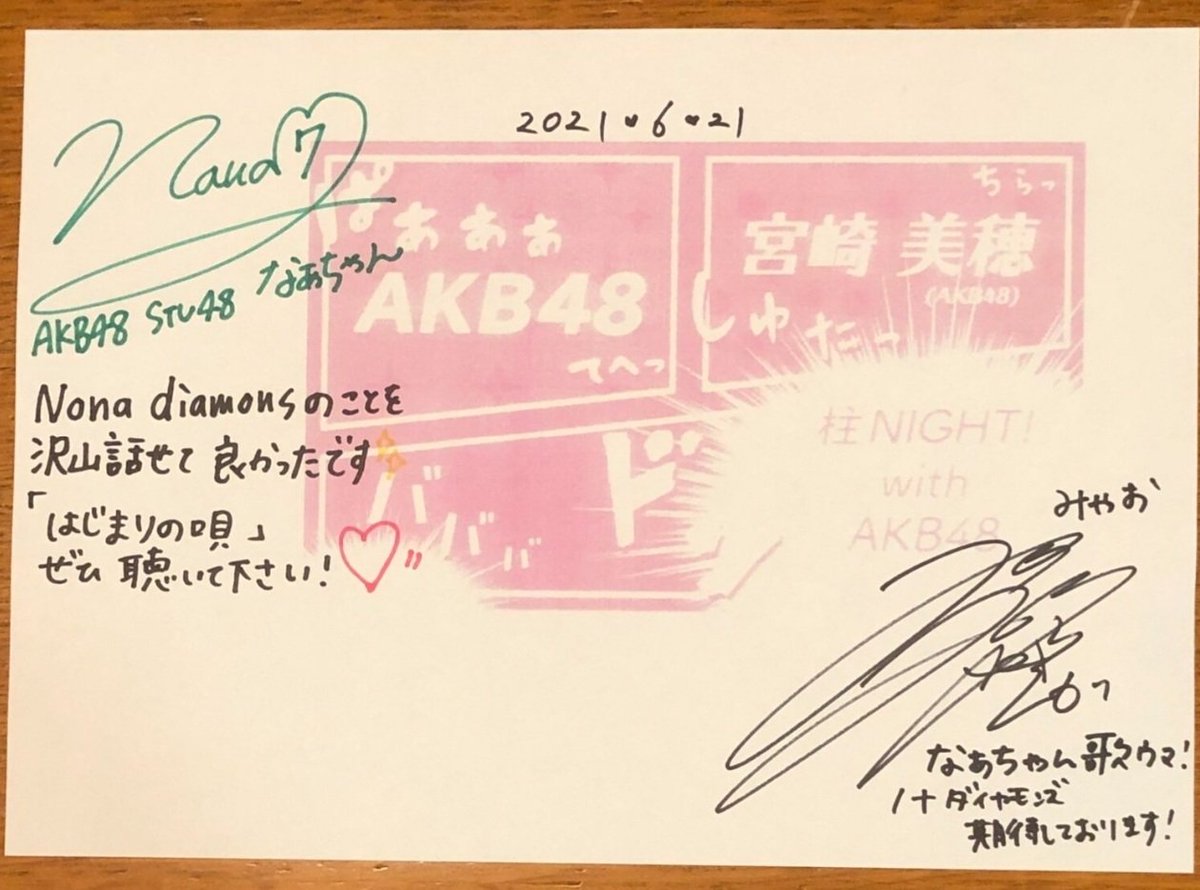 2021♥6♥21
Nana 7
AKB48 STU48 なぁちゃん
Nona diamonsのことを
沢山話せて良かったです
「はじまりの唄」
ぜひ聴いて下さい!
ぱぁぁぁ
AKB48
てへっ
ちらっ
宮崎 美穂
(AKB48)
しゅたっ
ババババ
ド
柱NIGHT!
with
AKB48
みやお
なぁちゃん歌ウマ!
ノナダイヤモンズ
期待しております!